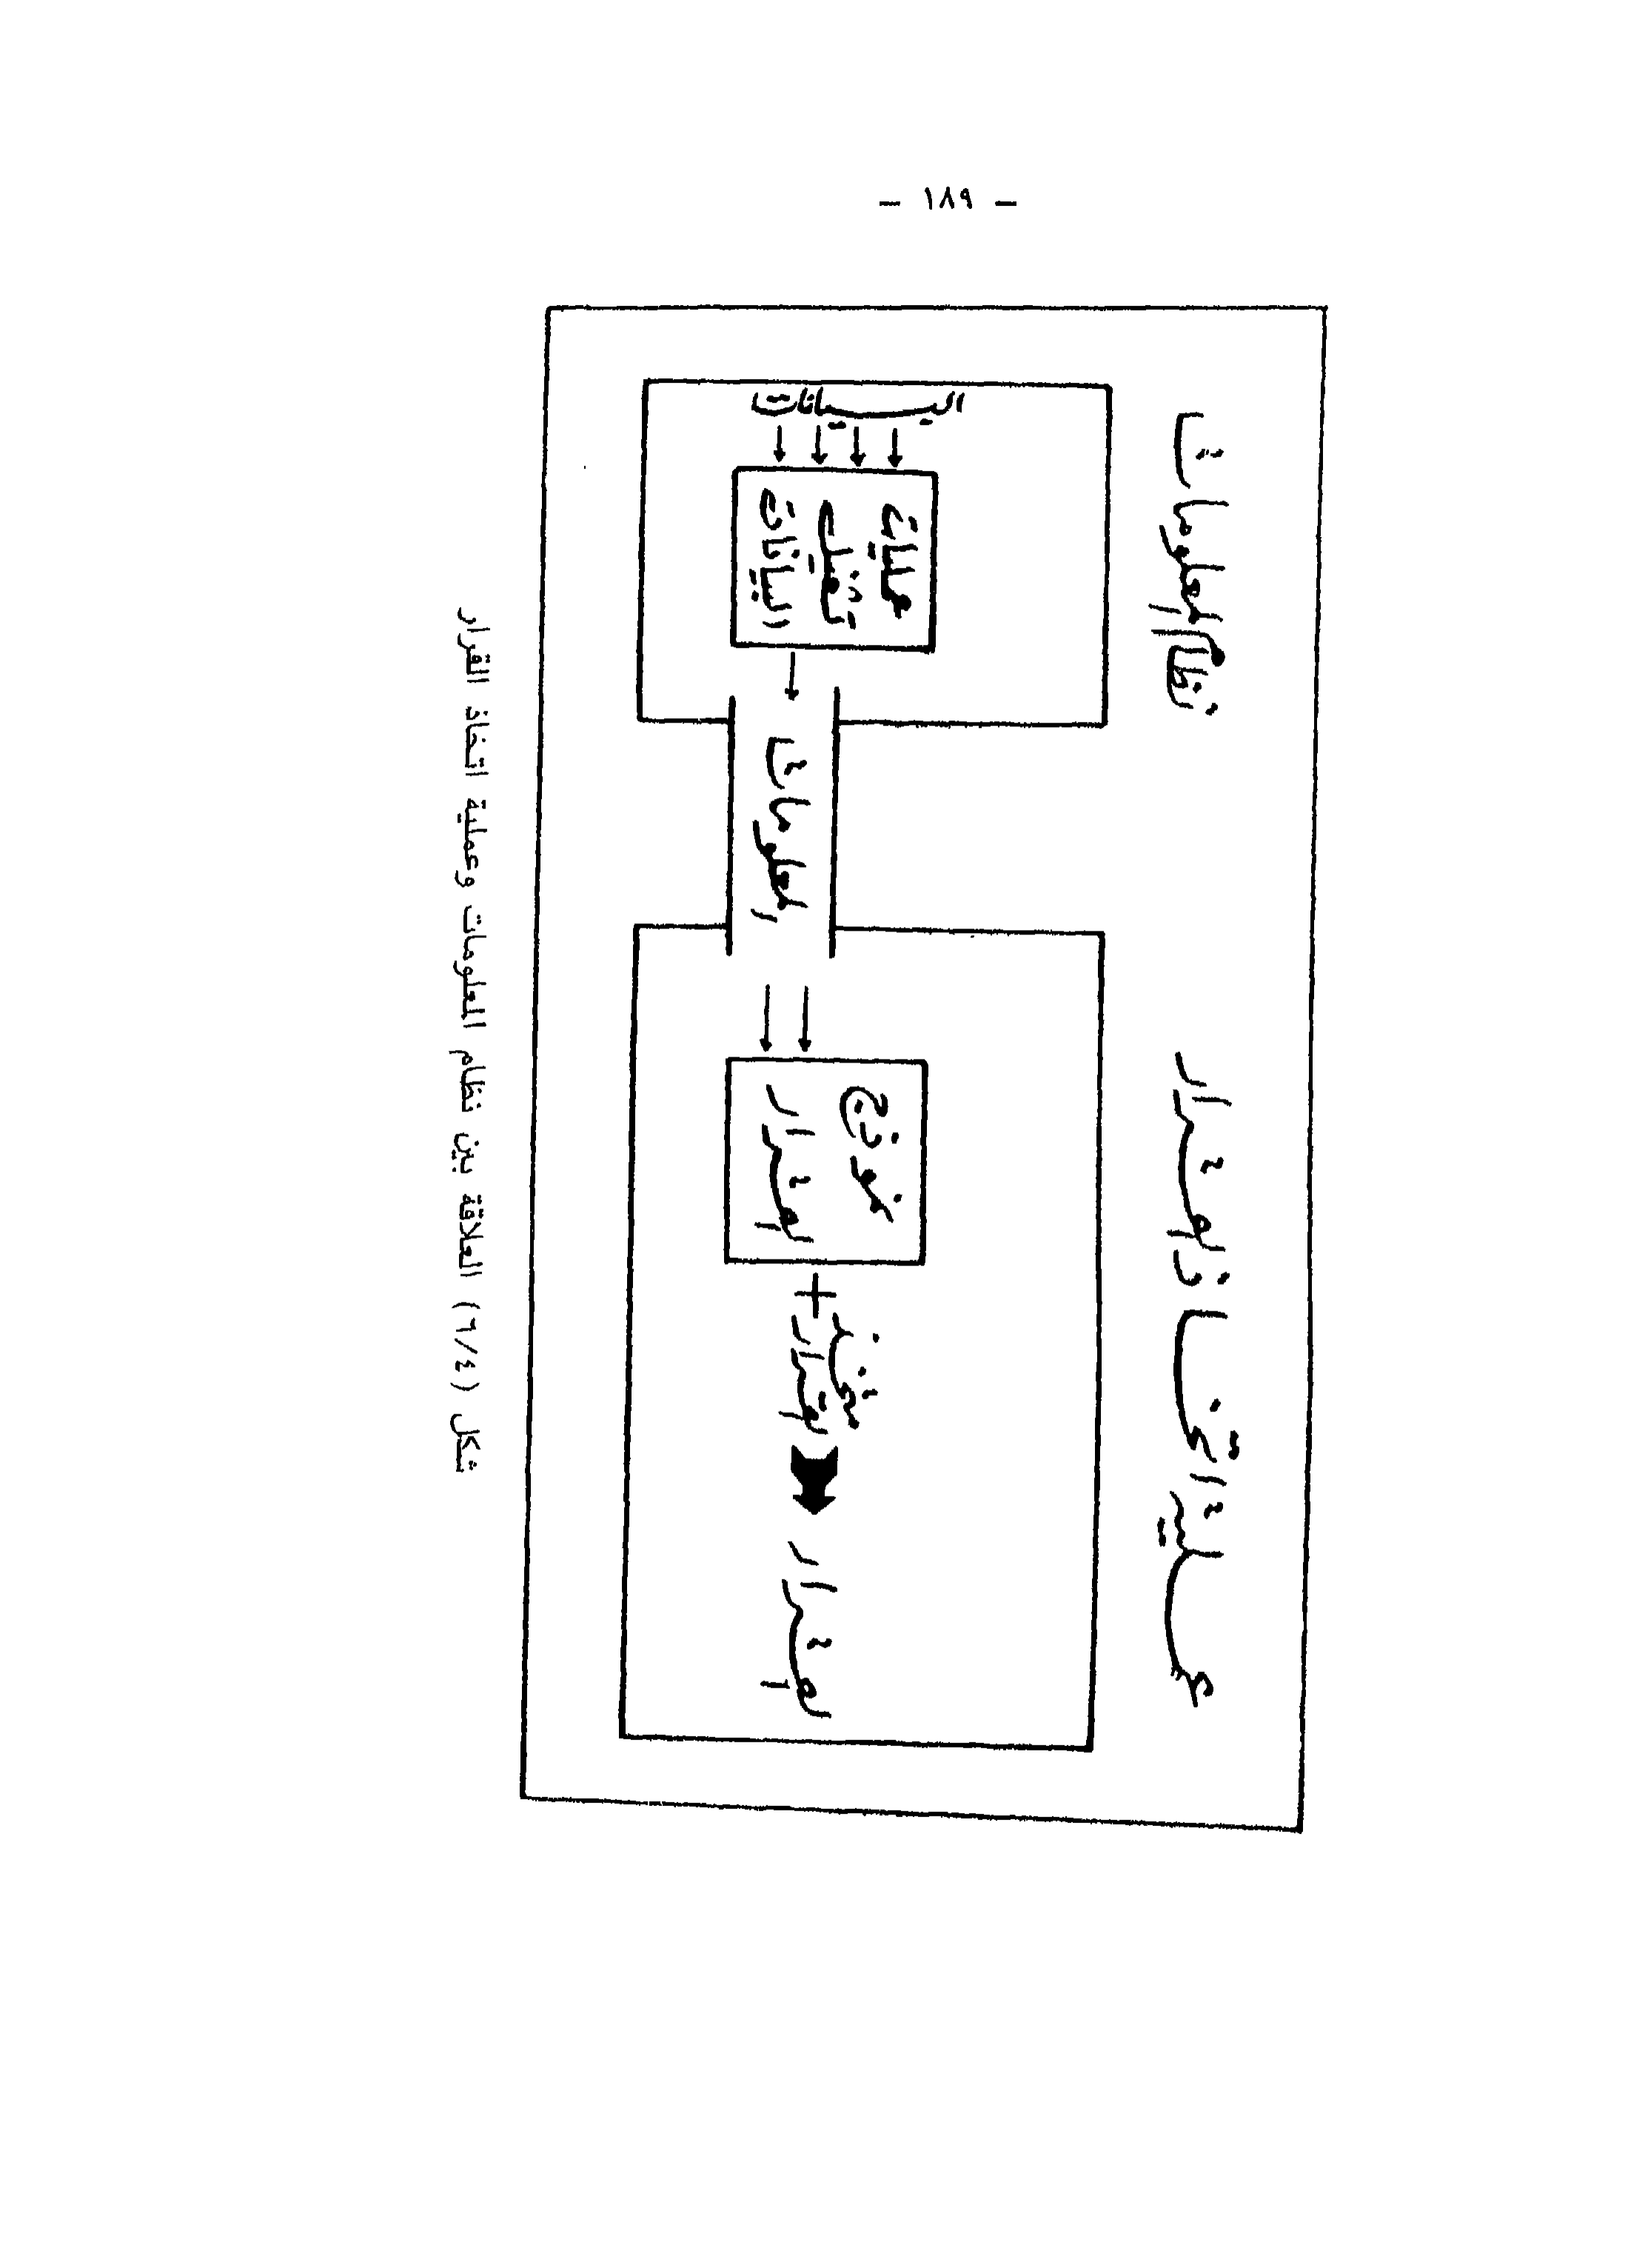 - ١٨٩ -
نظام المعلومات
عملية اتخاذ القرار
البيانات
عمليات
تشغيل
البيانات
المعلومات
نموذج
القرار
+
متخذ
القرار
القرار
شكل (٦/٤) العلاقة بين نظام المعلومات وعملية اتخاذ القرار